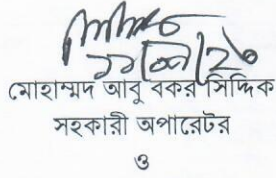 মোহাম্মদ আবু বকর সিদ্দিক
সহকারী অপারেটর
ও